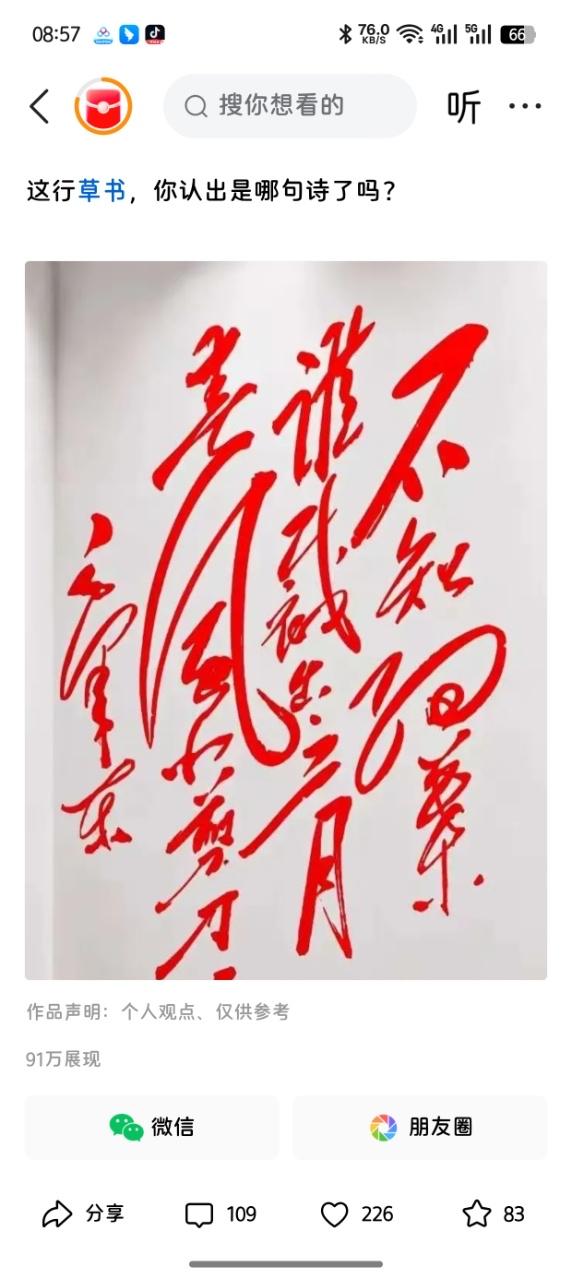 08:57
76.0 KB/S
4G
5G
66
搜你想看的
听
这行草书，你认出是哪句诗了吗？
不知细葉
谁裁出二月
春风似剪刀
毛泽东
作品声明：个人观点、仅供参考
91万展现
微信
朋友圈
分享
109
226
83